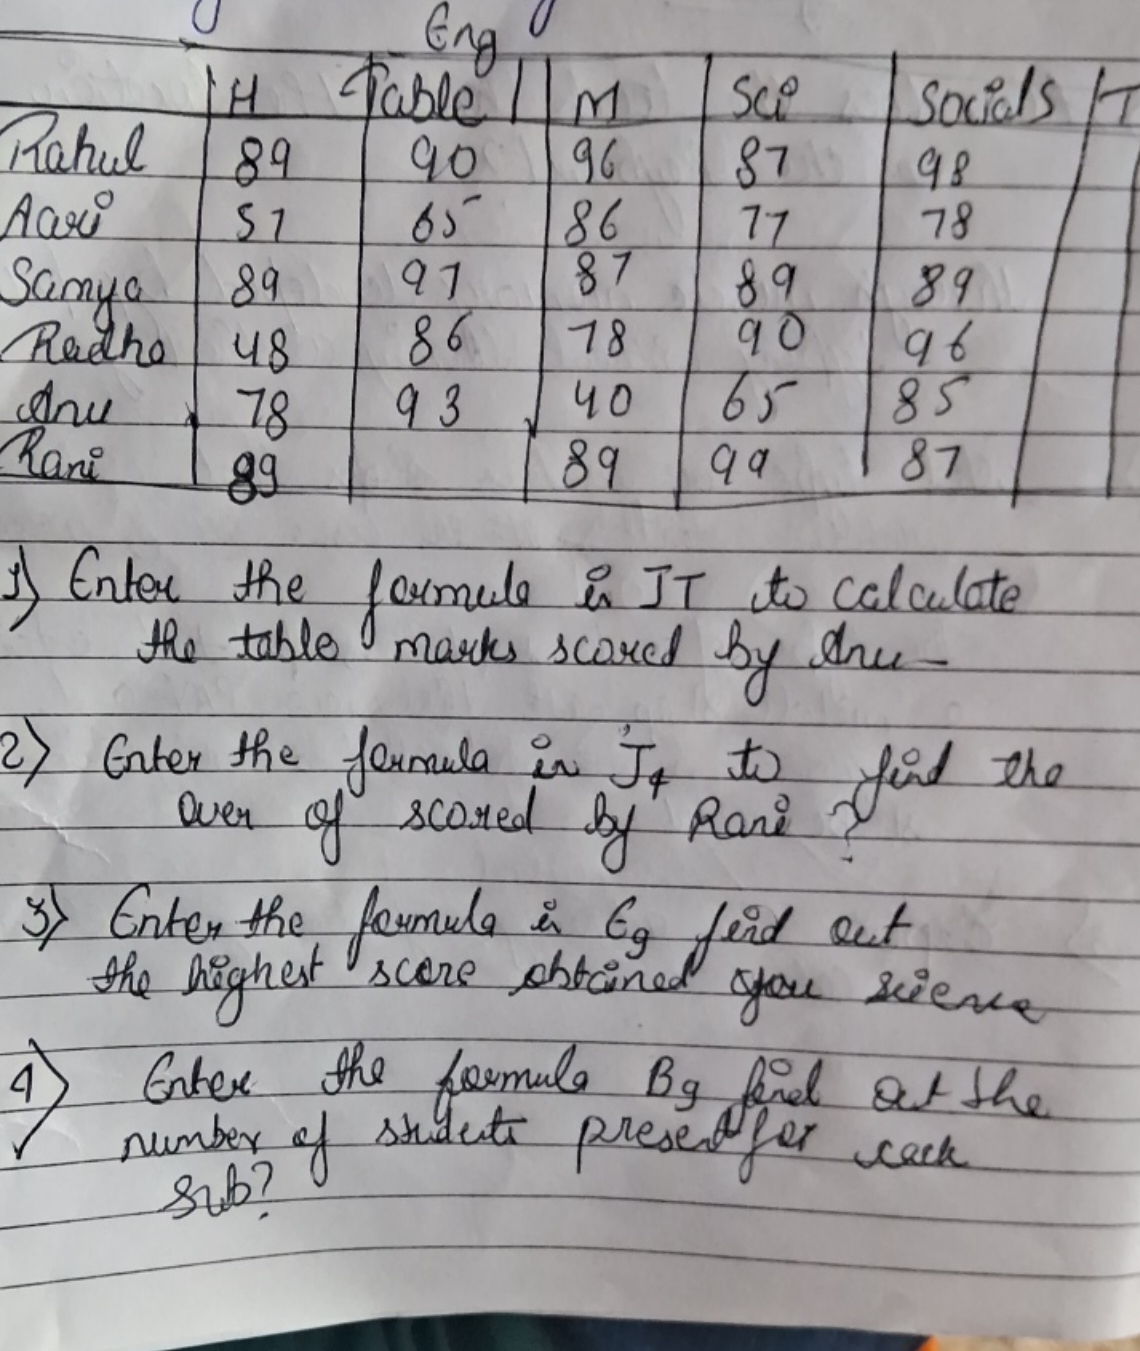 Eng
H Table M Sci Socials T
Rahul 89 90 96 87 98
Aari 57 65 86 77 78
Samya 89 97 87 89 89
Radha 48 86 78 90 96
Anu 78 93 40 65 85
Rani 89 89 99 87
1) Enter the formula in JT to calculate
the table marks scored by Anu-
2) Enter the formula in J4 to find the
over of scored by Rani ?
3) Enter the formula in Eg find out
the highest score obtained you science
4) Enter the formula Bg find out the
number of students present for each
sub?